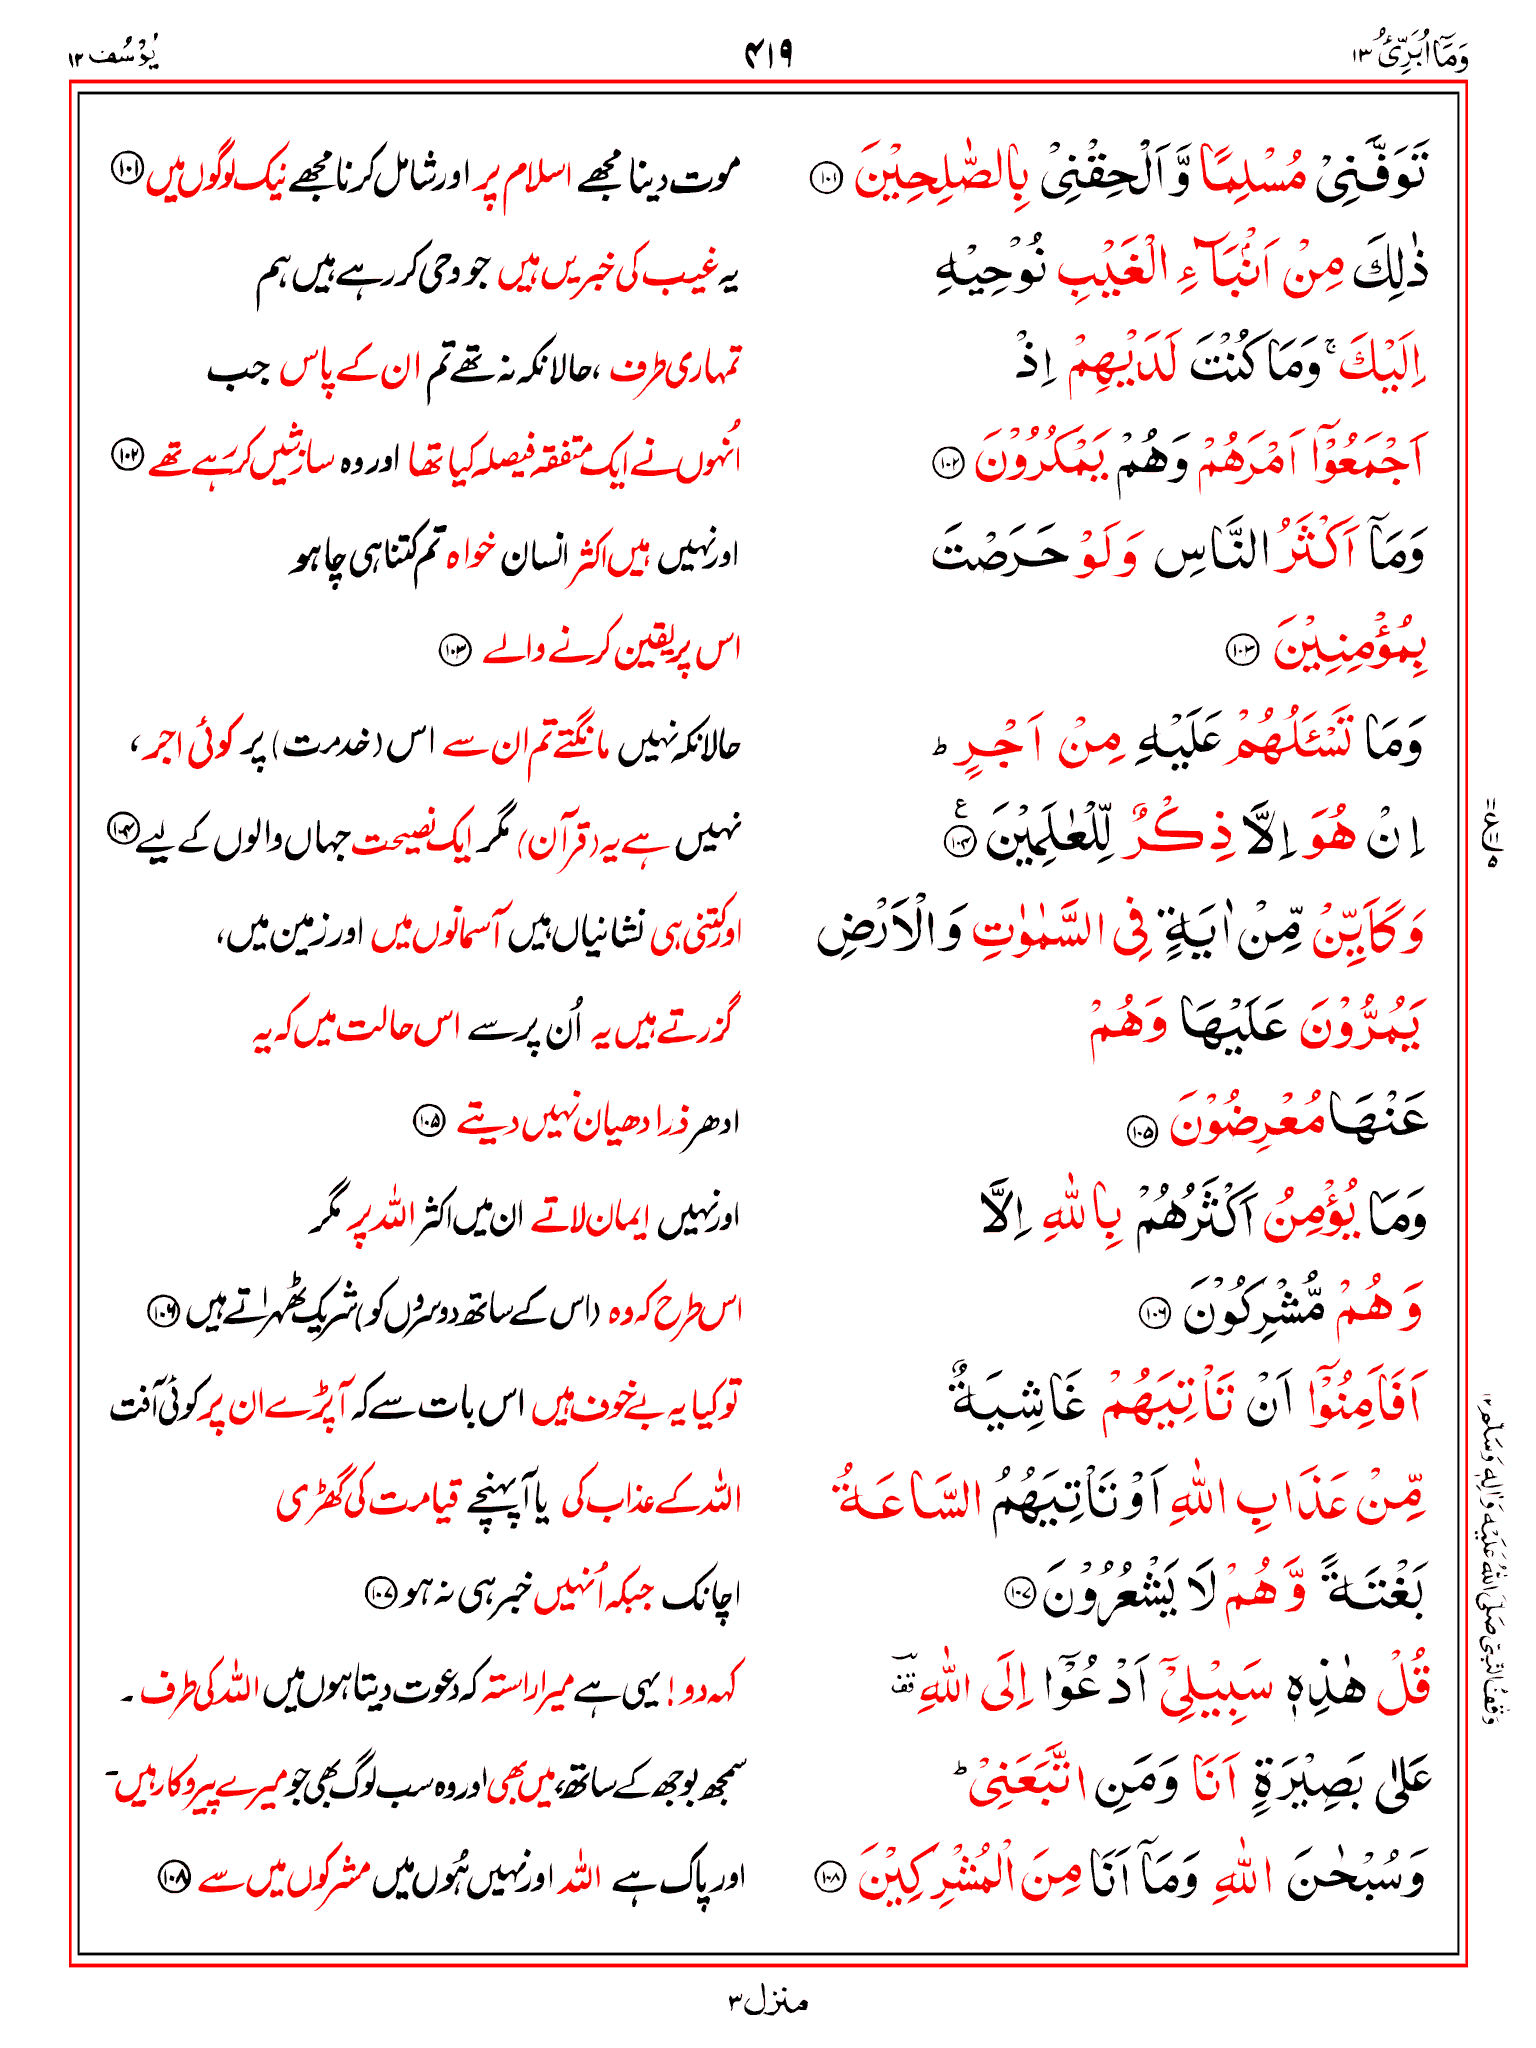 وَمَآ اُبَرِّئُ ١٣
٤١٩
يُوْسُف ١٢
تَوَفَّنِىْ مُسْلِمًا وَّاَلْحِقْنِىْ بِالصّٰلِحِيْنَ ﴿١٠١﴾ موت دینا مجھے اسلام پر اور شامل کرنا مجھے نیک لوگوں میں ﴿١٠١﴾
ذٰلِكَ مِنْ اَنْۢبَآءِ الْغَيْبِ نُوْحِيْهِ یہ غیب کی خبریں ہیں جو وحی کر رہے ہیں ہم
اِلَيْكَ ۚ وَمَا كُنْتَ لَدَيْهِمْ اِذْ تمہاری طرف ، حالانکہ نہ تھے تم ان کے پاس جب
اَجْمَعُوْٓا اَمْرَهُمْ وَهُمْ يَمْكُرُوْنَ ﴿١٠٢﴾ اُنہوں نے ایک متفقہ فیصلہ کیا تھا اور وہ سازشیں کر رہے تھے ﴿١٠٢﴾
وَمَآ اَكْثَرُ النَّاسِ وَلَوْ حَرَصْتَ اور نہیں ہیں اکثر انسان خواہ تم کتنا ہی چاہو
بِمُؤْمِنِيْنَ ﴿١٠٣﴾ اس پر یقین کرنے والے ﴿١٠٣﴾
وَمَا تَسْـَٔلُهُمْ عَلَيْهِ مِنْ اَجْرٍ ؕ حالانکہ نہیں مانگتے تم ان سے اس (خدمت) پر کوئی اجر ،
اِنْ هُوَ اِلَّا ذِكْرٌ لِّلْعٰلَمِيْنَ ﴿١٠٤﴾ ع نہیں ہے یہ (قرآن) مگر ایک نصیحت جہاں والوں کے لیے ﴿١٠٤﴾
وَكَاَيِّنْ مِّنْ اٰيَةٍ فِى السَّمٰوٰتِ وَالْاَرْضِ اور کتنی ہی نشانیاں ہیں آسمانوں میں اور زمین میں،
يَمُرُّوْنَ عَلَيْهَا وَهُمْ گزرتے ہیں یہ اُن پر سے اس حالت میں کہ یہ
عَنْهَا مُعْرِضُوْنَ ﴿١٠٥﴾ ادھر ذرا دھیان نہیں دیتے ﴿١٠٥﴾
وَمَا يُؤْمِنُ اَكْثَرُهُمْ بِاللّٰهِ اِلَّا اور نہیں ایمان لاتے ان میں اکثر اللہ پر مگر
وَهُمْ مُّشْرِكُوْنَ ﴿١٠٦﴾ اس طرح کہ وہ (اس کے ساتھ دوسروں کو) شریک ٹھہراتے ہیں ﴿١٠٦﴾
اَفَاَمِنُوْٓا اَنْ تَاْتِيَهُمْ غَاشِيَةٌ تو کیا یہ بے خوف ہیں اس بات سے کہ آپڑے ان پر کوئی آفت
مِّنْ عَذَابِ اللّٰهِ اَوْ تَاْتِيَهُمُ السَّاعَةُ اللہ کے عذاب کی یا آپہنچے قیامت کی گھڑی
بَغْتَةً وَّهُمْ لَا يَشْعُرُوْنَ ﴿١٠٧﴾ اچانک جبکہ اُنہیں خبر ہی نہ ہو ﴿١٠٧﴾
قُلْ هٰذِهٖ سَبِيْلِىْٓ اَدْعُوْٓا اِلَى اللّٰهِ کہہ دو ! یہی ہے میرا راستہ کہ دعوت دیتا ہوں میں اللہ کی طرف ۔
عَلٰى بَصِيْرَةٍ اَنَا وَمَنِ اتَّبَعَنِىْ ؕ سمجھ بوجھ کے ساتھ، میں بھی اور وہ سب لوگ بھی جو میرے پیروکار ہیں۔
وَسُبْحٰنَ اللّٰهِ وَمَآ اَنَا مِنَ الْمُشْرِكِيْنَ ﴿١٠٨﴾ اور پاک ہے اللہ اور نہیں ہُوں میں مشرکوں میں سے ﴿١٠٨﴾
وَقْفُ النَّبِىِّ صَلَّى اللّٰهُ عَلَيْهِ وَاٰلِهٖ وَسَلَّمَ ١٢
منزل ٣